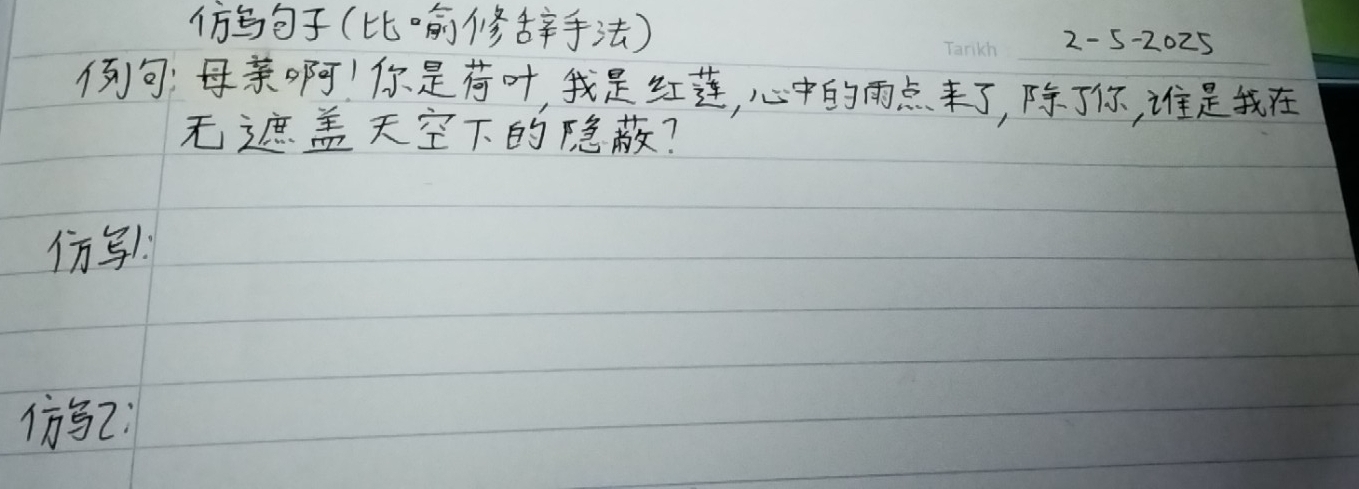 仿写句子(比喻修辞手法)
Tarikh 2-5-2025
例句: 母亲啊!你是荷叶,我是红莲,心中的雨点来了,除了你,谁是我在
无遮盖天空下的隐蔽?
仿写1:
仿写2: